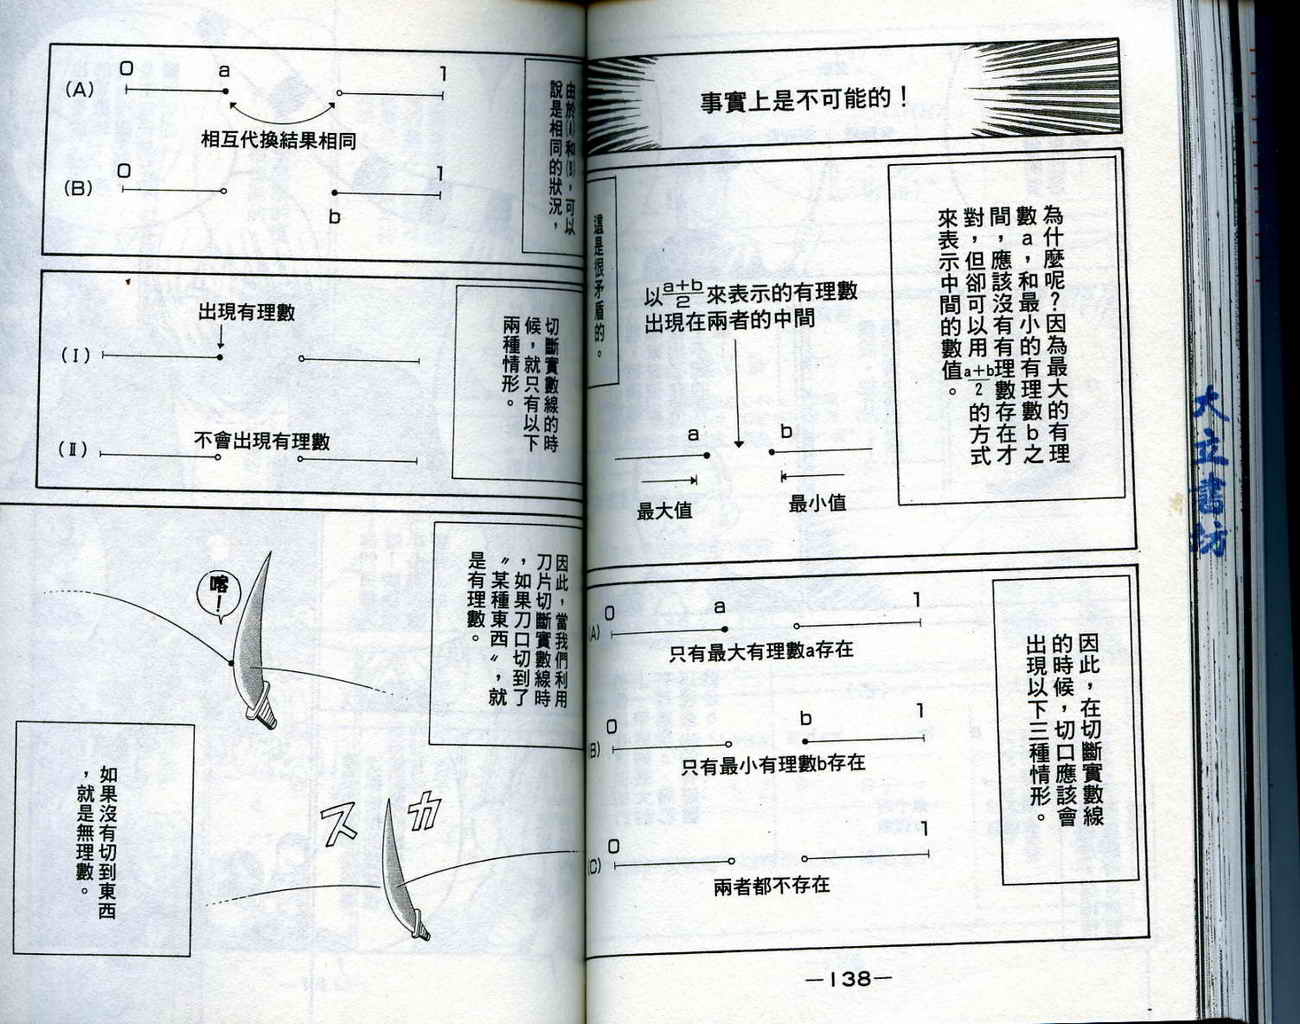 事實上是不可能的！
為什麼呢？因為最大的有理
數a，和最小的有理數b之
間，應該沒有有理數存在才
對，但卻可以用 a+b/2 的方式
來表示中間的數值。
以 a+b/2 來表示的有理數
出現在兩者的中間
a
b
最大值
最小值
這是很矛盾的。
因此，在切斷實數線
的時候，切口應該會
出現以下三種情形。
(A)
0
a
1
只有最大有理數a存在
(B)
0
b
1
只有最小有理數b存在
(C)
0
1
兩者都不存在
—138—
由於(A)和(B)，可以
說是相同的狀況，
(A)
0
a
1
相互代換結果相同
(B)
0
b
1
切斷實數線的時
候，就只有以下
兩種情形。
(I)
出現有理數
(II)
不會出現有理數
因此，當我們利用
刀片切斷實數線時
，如果刀口切到了
〝某種東西〞，就
是有理數。
喀！
スカ
如果沒有切到東西
，就是無理數。
大立書坊